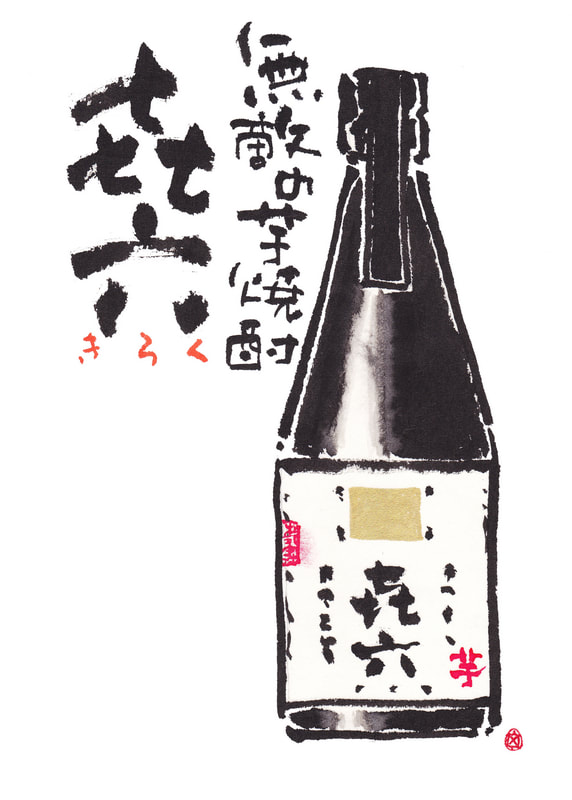 㐂六
きろく
無敵の芋焼酎
㐂六
芋